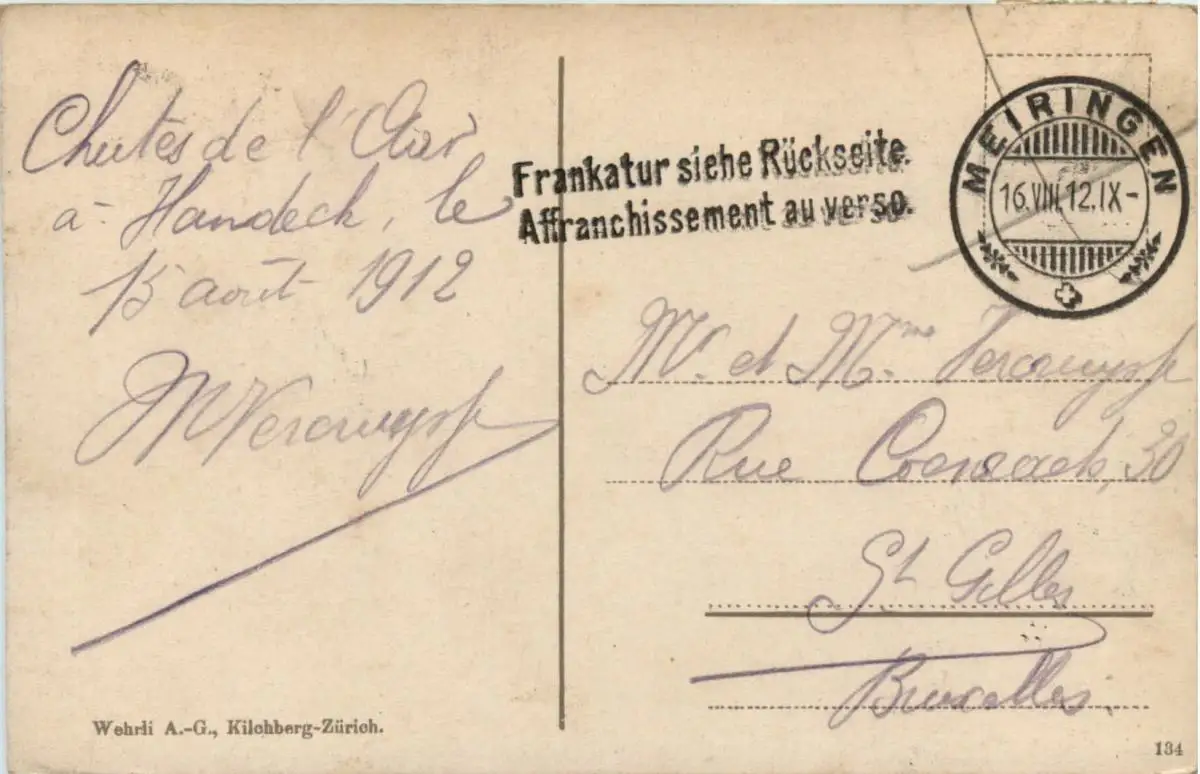 Chutes de l'Aar
à Handeck, le
15 août 1912
Frankatur siehe Rückseite.
Affranchissement au verso.
MEIRINGEN
16.VIII.12.IX-
Mr. et Mme
Rue 30
St Gilles
Bruxelles.
Wehrli A.-G., Kilchberg-Zürich.
134